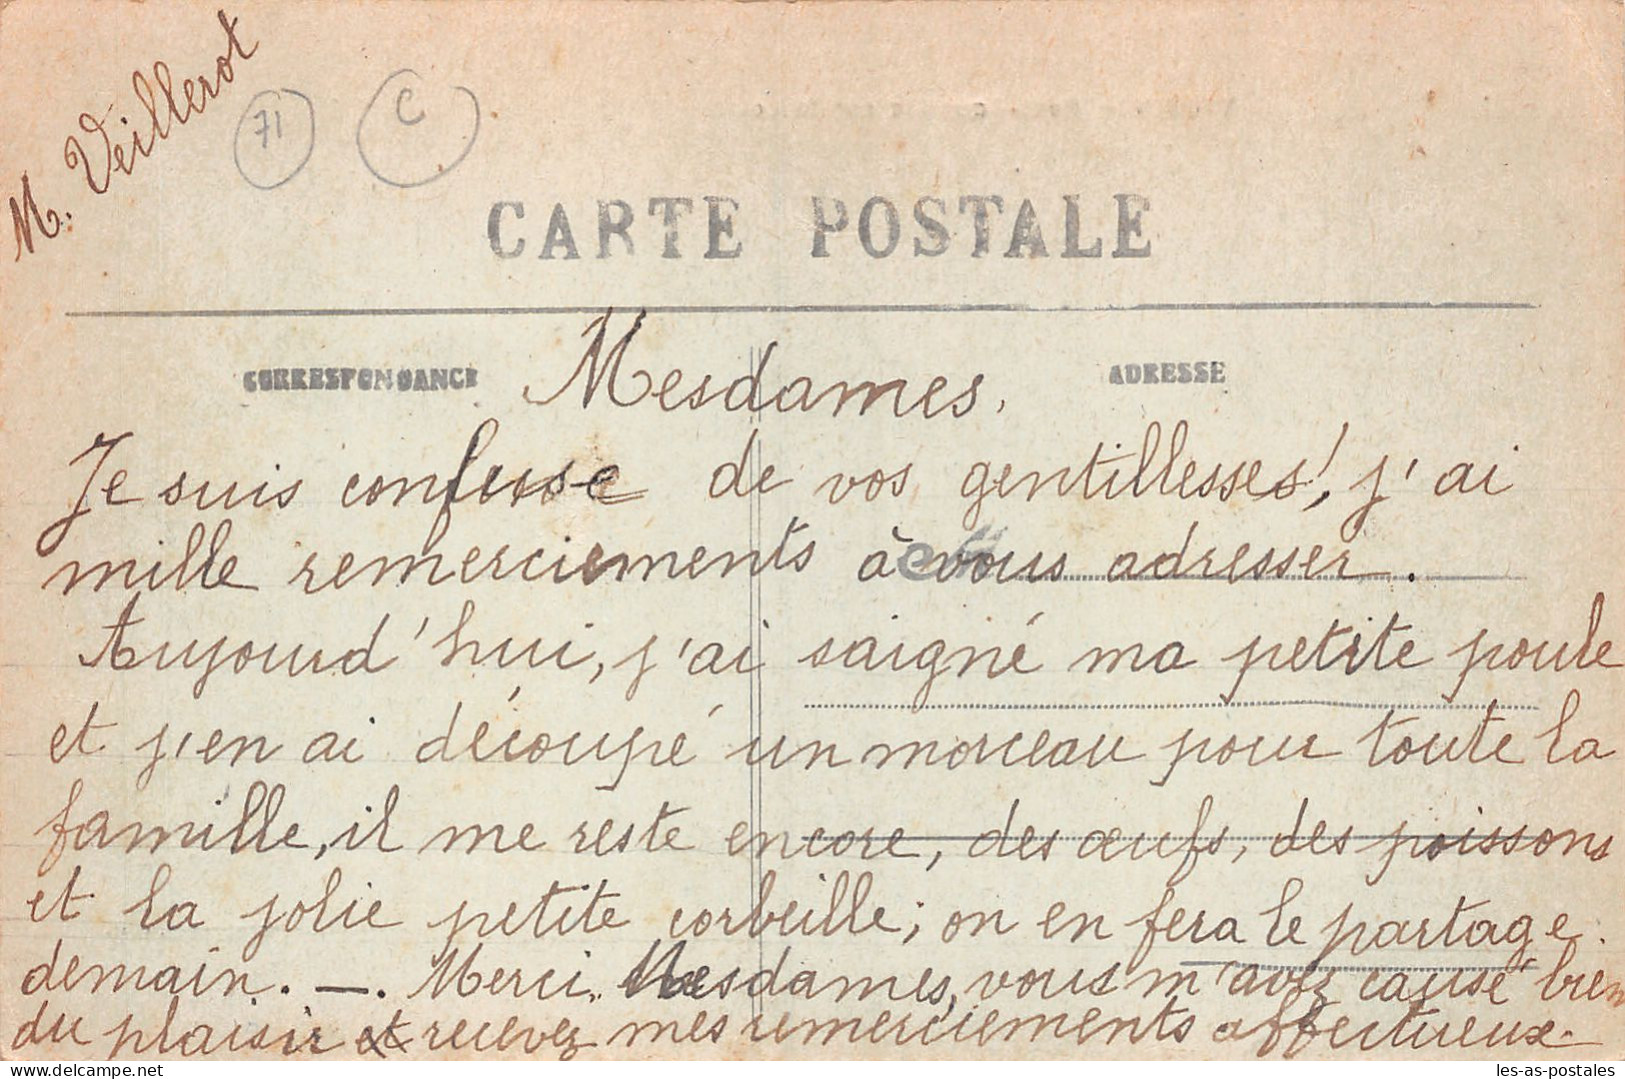 M. Veillerot
71
C
CARTE POSTALE
CORRESPONDANCE
ADRESSE
Mesdames,
Je suis confuse de vos gentillesses!, j'ai
mille remerciements à vous adresser.
Aujourd'hui, j'ai saigné ma petite poule
et j'en ai découpé un morceau pour toute la
famille, il me reste encore, des œufs, des poissons
et la jolie petite corbeille; on en fera le partage
demain. —. Merci Mesdames, vous m'avez causé bien
du plaisir et recevez mes remerciements affectueux.
delcampe.net
les-as-postales